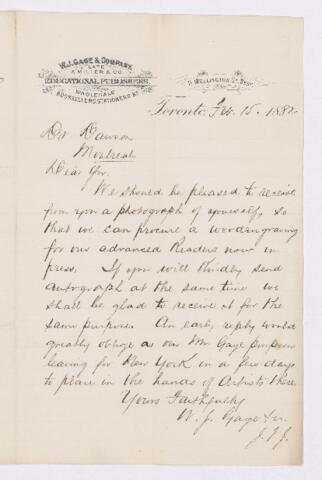 W. J. GAGE & COMPANY,
LATE
A. MILLER & CO.
EDUCATIONAL PUBLISHERS,
WHOLESALE
BOOKSELLERS, STATIONERS &c
11 WELLINGTON ST. WEST.
Toronto, Feb. 15. 1882
Dr Dawson
Montreal
Dear Sir.
We should be pleased to receive
from you a photograph of yourself, so
that we can procure a wood engraving
for our advanced Readers now in
press. If you will kindly send
autograph at the same time we
shall be glad to receive it for the
same purpose. An early reply would
greatly oblige as our Mr. Gage purposes
leaving for New York in a few days
to place in the hands of Artists there.
Yours Faithfully
W. J. Gage & Co.